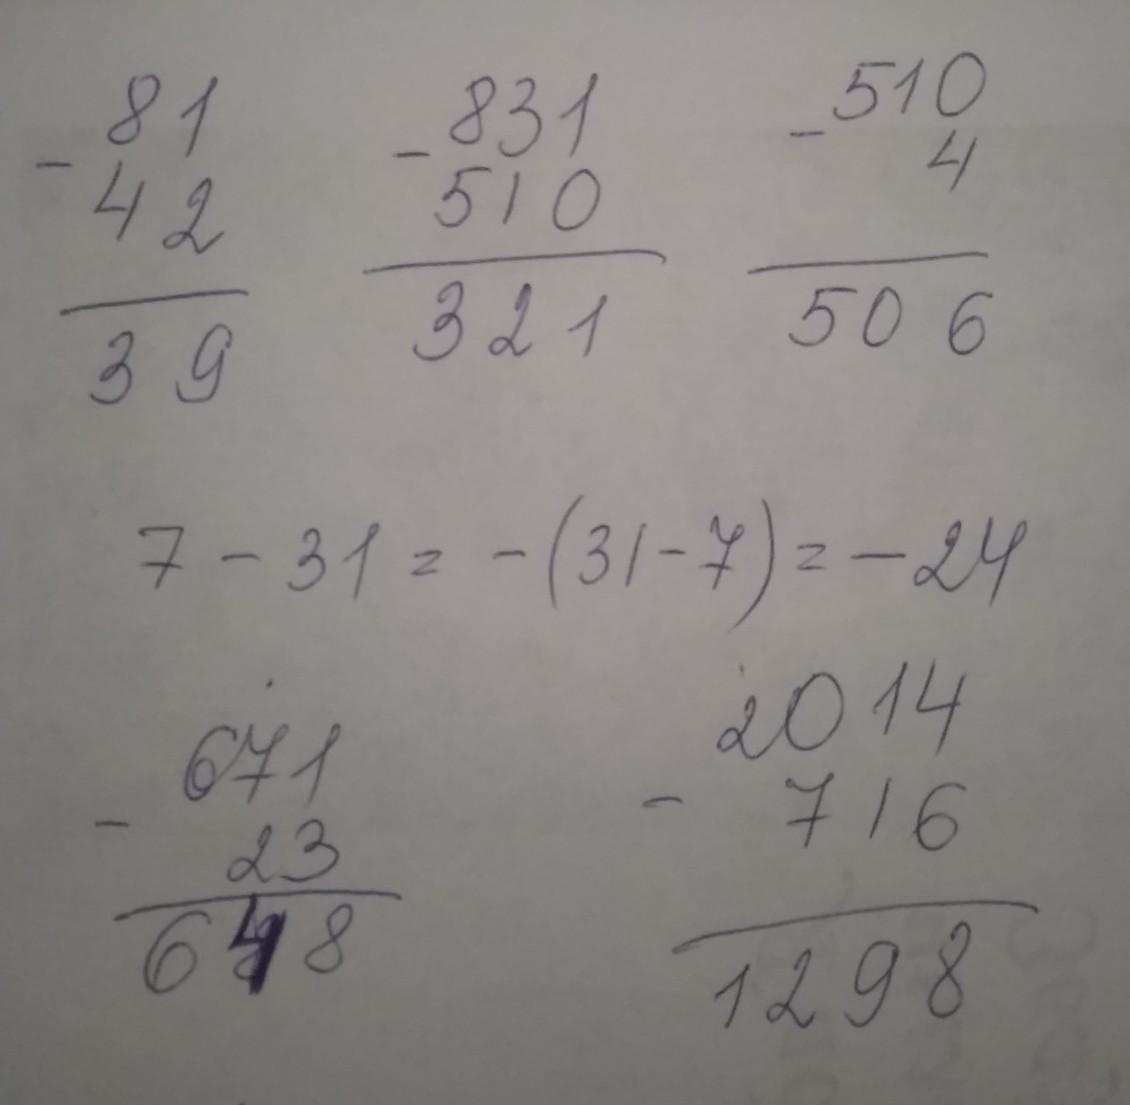 81 831 510
- - -
42 510 4
39 321 506
7 - 31 = -(31-7) = -24
671 2014
- -
23 716
648 1298